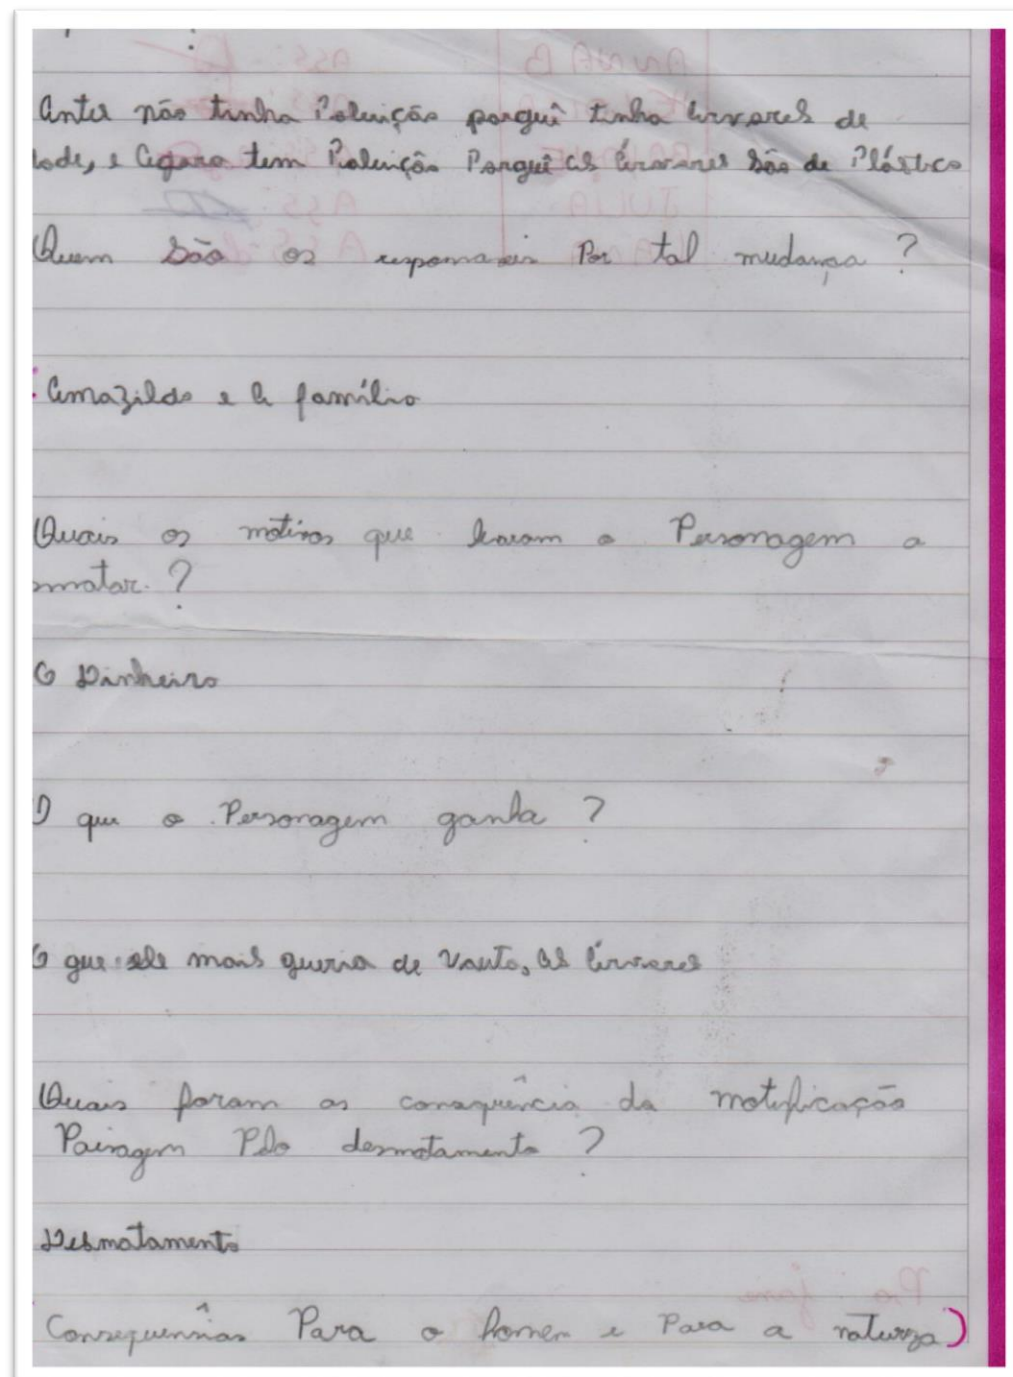 Antes não tinha Poluição porquê tinha árvores de
lade, e Agora tem Poluição Porquê as árvores são de Plástico
Quem são os responsaveis Por tal mudança ?
Amazildo e a família
Quais os motivos que levaram o Personagem a
smatar. ?
O Dinheiro
O que o Personagem ganha ?
O que ele mais queria de volta, as árvores
Quais foram as consequência da motificação
Paisagem Pelo desmatamento ?
Desmatamento
Consequennias Para o homem e Para a natureza)
ANNA B
ASS:
JULIA
ASS: